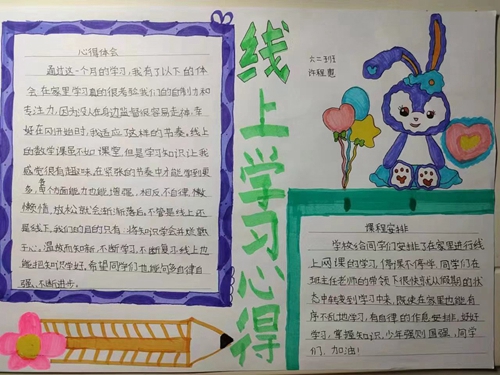 心得体会
通过这一个月的学习,我有了以下的体
会.在家里学习真的很考验我们的自制力和
专注力,因为没人在身边监督很容易走神,幸
好在同开始时,我适应了这样的节奏,线上
的数学课虽不如课堂,但是学习知识让我
感觉很有趣味,在紧张的节奏中才能学到更
多,每个方面能力也能增强,相反,不自律,懒
懒惰,放松就会渐渐落后,不管是线上还
是线下,我们的目的只有:将知识学会并燃熟
于心。温故而知新,不断学习,不断复习线上也
能把知识学好,希望同学们也能够多自律自
强、不断进步。
线上学习心得
六二班
许程惠
课程安排
学校给同学们安排了在家里进行线
上网课的学习,停课不停学,同学们在
班主任老师的带领下很快就从假期的状
态中转束到学习中来,既使在家里也能有
序不乱地学习,有自律的作息安排,好好
学习,掌握知识,少年强则国强,同学
们、加油!